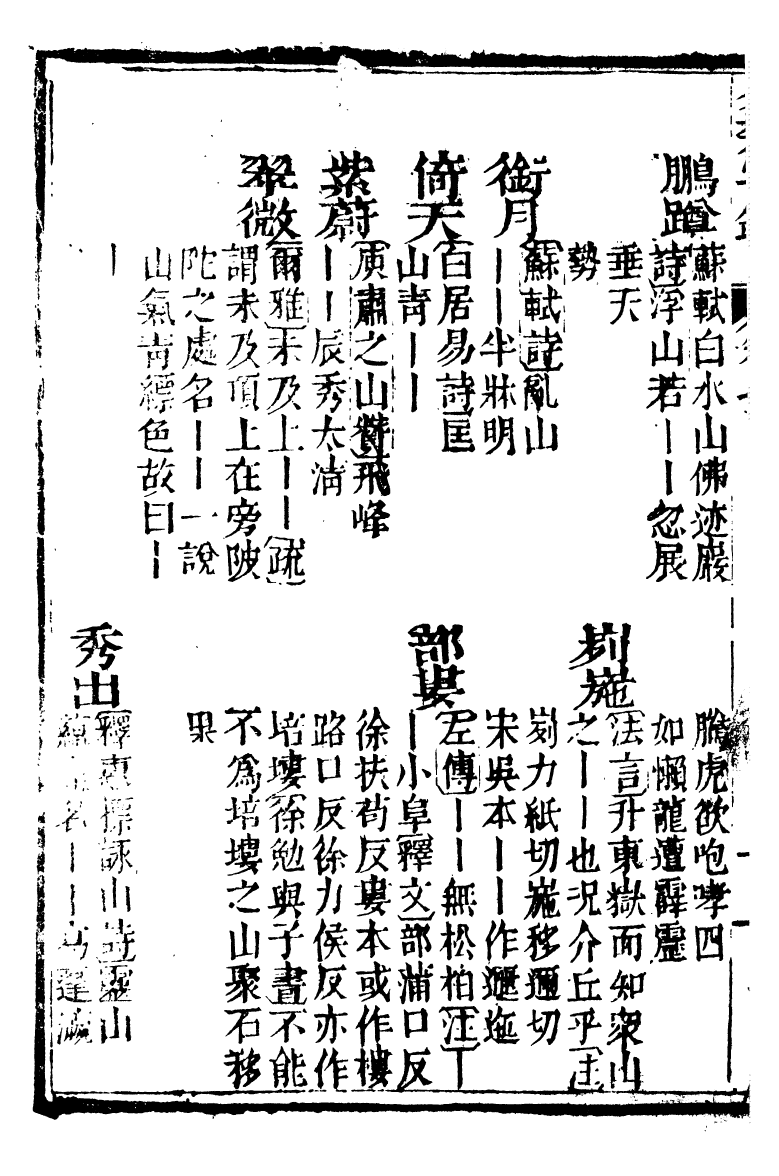 鵬蹲
蘇軾白水山佛迹巖
詩浮山若丨丨忽展
垂天
勢
銜月
蘇軾詩亂山
丨丨半牀明
倚天
白居易詩匡
山青丨丨
紫蔚
庾肅之山贊飛峰
丨丨辰秀太清
翠微
爾雅未及上丨丨疏
謂未及頂上在旁陂
陀之處名丨丨一說
山氣青縹色故曰丨
丨
虎欲咆哮四
如懶龍遭霹靂
峛崺
法言升東嶽而知衆山
之丨丨也況介丘乎
峛力紙切崺移邇切
宋吳本丨丨作邐迤
部婁
左傳丨丨無松柏注丨
丨小阜釋文部蒲口反
徐扶苟反婁本或作樓
路口反徐力侯反亦作
培塿徐勉與子書不能
不爲培塿之山聚石移
果
秀出
釋惠標詠山詩靈山
名丨丨蓬瀛